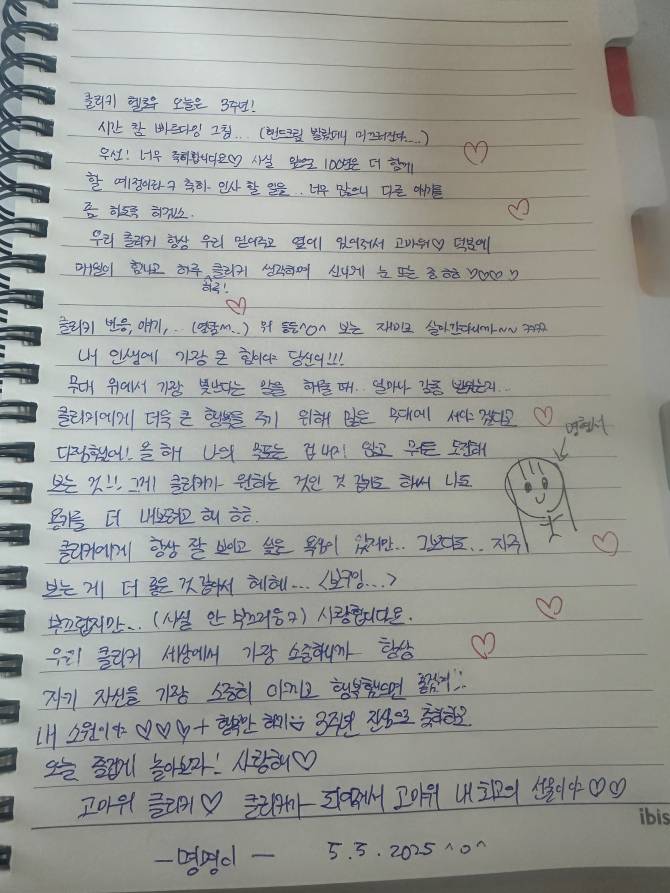 클리키 헬로우 오늘은 3주년!
시간 참 빠르다잉 그럼... (핸드크림 발랐더니 미끄러진다....)
우선! 너무 축하합니다요♡ 사실 앞으로 100년은 더 함께
할 예정이라ㅋ 축하 인사 할 일들.. 너무 많으니 다른 얘기를
좀 하도록 하겠소.
우리 클리키 항상 우리 믿어주고 옆에 있어줘서 고마워♡ 덕분에
매일이 힘나고 하루 클리키 생각하며 신나게 눈 뜨는 중 ㅎㅎ ♡♡♡♡
하루!
클리키 반응, 얘기,.. 뭐 등등^0^ 보는 재미로 살아간다니까~~ ㅋㅋㅋㅋ
내 인생에 가장 큰 힘이야 당신이!!!
무대 위에서 가장 빛난다는 말을 해줄 때.. 얼마나 감동 받았는지...
클리키에게 더욱 큰 행복을 주기 위해 많은 무대에 서야 겠다고
다짐했어! 올 해 나의 목표는 겁 내지 않고 뭐든 도전해
명형서
보는 것!! 그게 클리키가 원하는 것인 것 같기도 해서 나도
용기를 더 내보려고 해 ㅎㅎ.
클리키에게 항상 잘 보이고 싶은 욕심이 있지만.. 그보다도.. 자주
보는 게 더 좋은 것 같아서 헤헤...
부끄럽지만... (사실 안 부끄러움ㅋ) 사랑합니다요.
우리 클리키 세상에서 가장 소중하니까 항상
자기 자신을 가장 소중히 아끼고 행복했으면 좋겠어!!
내 소원이야 ♡♡♡ + 행복만 하기 3주년 진심으로 축하하고
오늘 즐겁게 놀아보자! 사랑해♡
고마워 클리키♡ 클리키가 되어줘서 고마워 내 최고의 선물이야♡♡
ibis
- 명명이 - 5.3.2025 ^o^